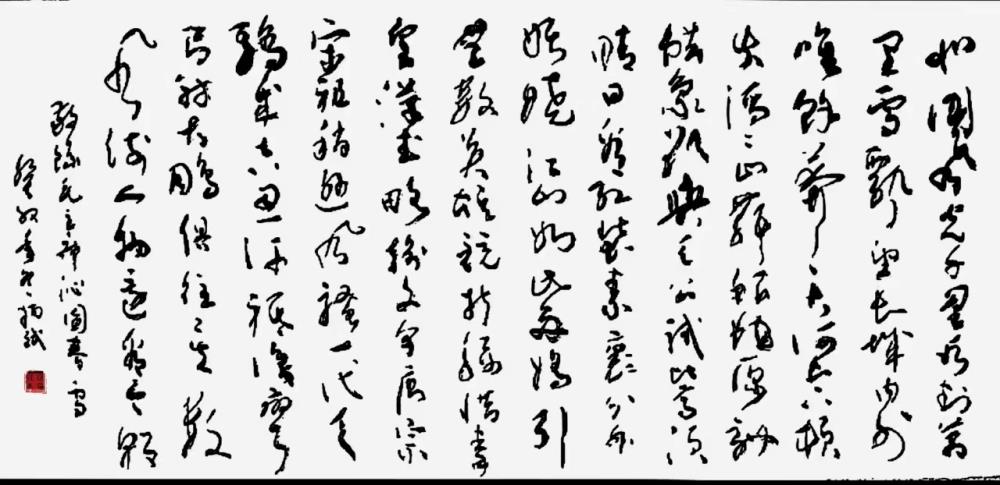 北國風光千里冰封萬
里雪飄望長城內外
唯餘莽莽大河上下頓
失滔滔山舞銀蛇原馳
蠟象欲與天公試比高須
晴日看紅裝素裹分外
妖嬈江山如此多嬌引
無數英雄競折腰惜秦
皇漢武略輸文采唐宗
宋祖稍遜風騷一代天
驕成吉思汗祇識彎
弓射大鵰俱往矣數
風流人物還看今朝
敬錄毛主席沁園春雪